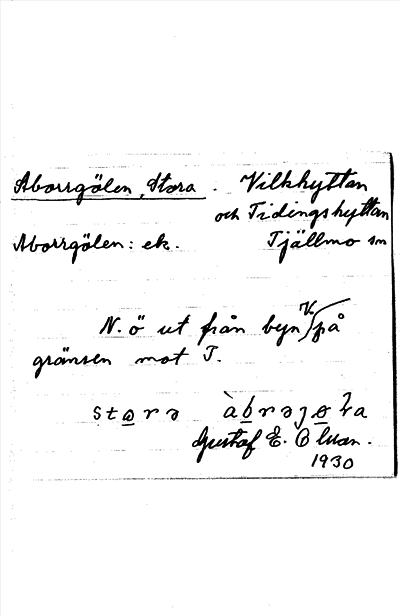 Aborrgölen, Stora. Vilkhyttan
och Tidingshyttan
Aborrgölen: ek. Tjällmo sn
N. ö ut från byn V. på
gränsen mot T.
Gustaf E.
1930